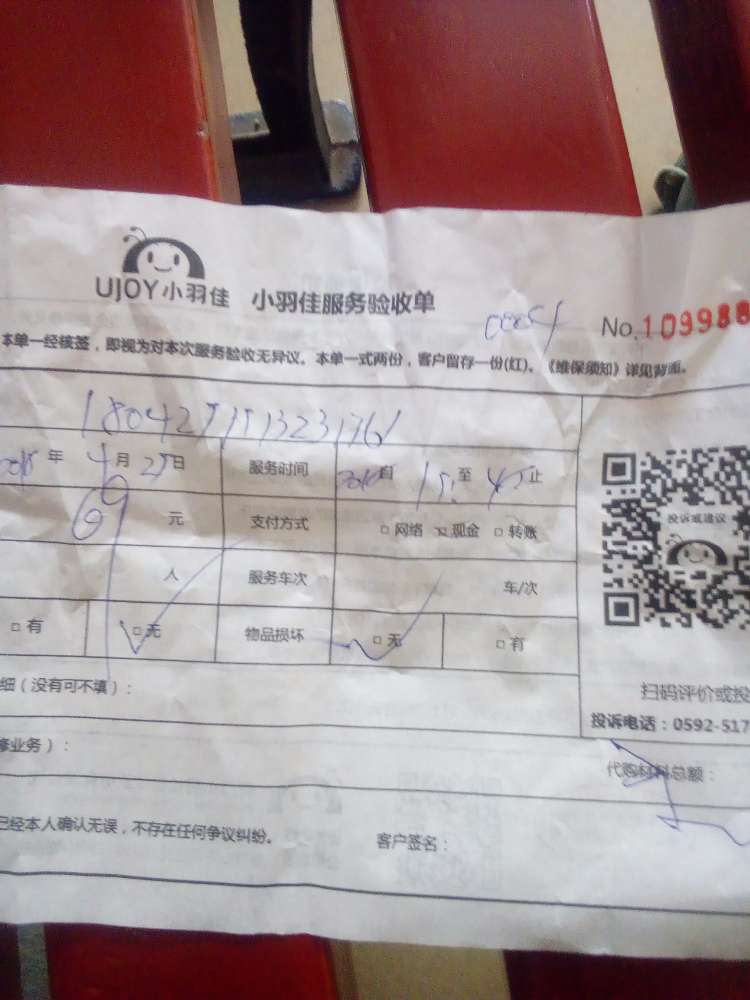 UJOY小羽佳 小羽佳服务验收单
No.109988
本单一经核签，即视为对本次服务验收无异议。本单一式两份，客户留存一份(红)。《维保须知》详见背面。
年 4月25日 服务时间 自 至 45 止
69 元 支付方式 □网络 ☑现金 □转账
人 服务车次 车/次
□有 □无 物品损坏 □无 □有
投诉或建议
细（没有可不填）：
扫码评价或投
投诉电话：0592-517
修业务）：
代购材料总额：
已经本人确认无误，不存在任何争议纠纷。 客户签名：